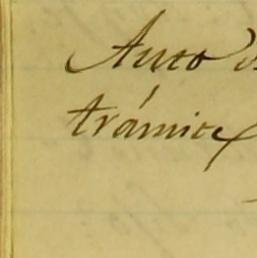 Auto
trámite